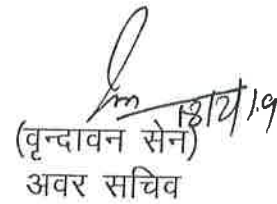 18/2/19
(वृन्दावन सेन)
अवर सचिव